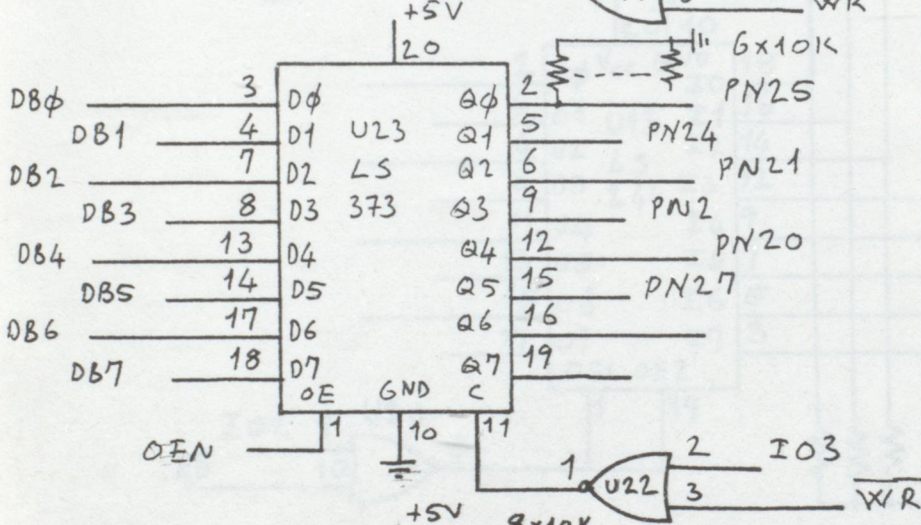 +5V
WR
20
6x10K
DBØ 3 DØ QØ 2 PN25
DB1 4 D1 U23 Q1 5 PN24
DB2 7 D2 LS Q2 6 PN21
DB3 8 D3 373 Q3 9 PN2
DB4 13 D4 Q4 12 PN20
DB5 14 D5 Q5 15 PN27
DB6 17 D6 Q6 16
DB7 18 D7 Q7 19
OE GND C
1 10 11
OEN
1 U22 2 IO3
3 WR
+5V 8x10K